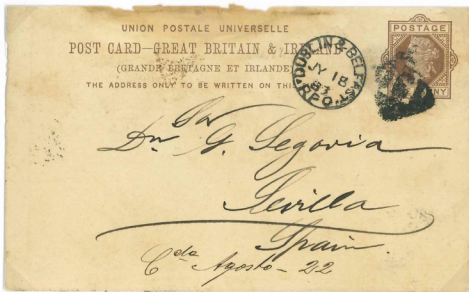 UNION POSTALE UNIVERSELLE
POST CARD—GREAT BRITAIN & IRELAND
(GRANDE BRETAGNE ET IRLANDE)
THE ADDRESS ONLY TO BE WRITTEN ON THIS
POSTAGE
NY
DUBLIN & BELFAST
JY 18
83
R.P.O.
Sr
Dn G. Segovia
Sevilla
Spain
Cda Agosto - 22